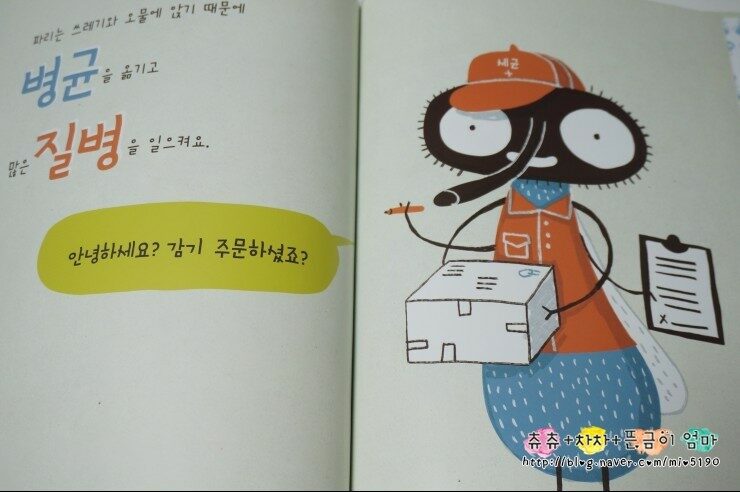 파리는 쓰레기와 오물에 앉기 때문에
병균을 옮기고
많은 질병을 일으켜요.
안녕하세요? 감기 주문하셨죠?
세균
츄츄+차차+뜬금이 엄마
http://blog.naver.com/mi05190